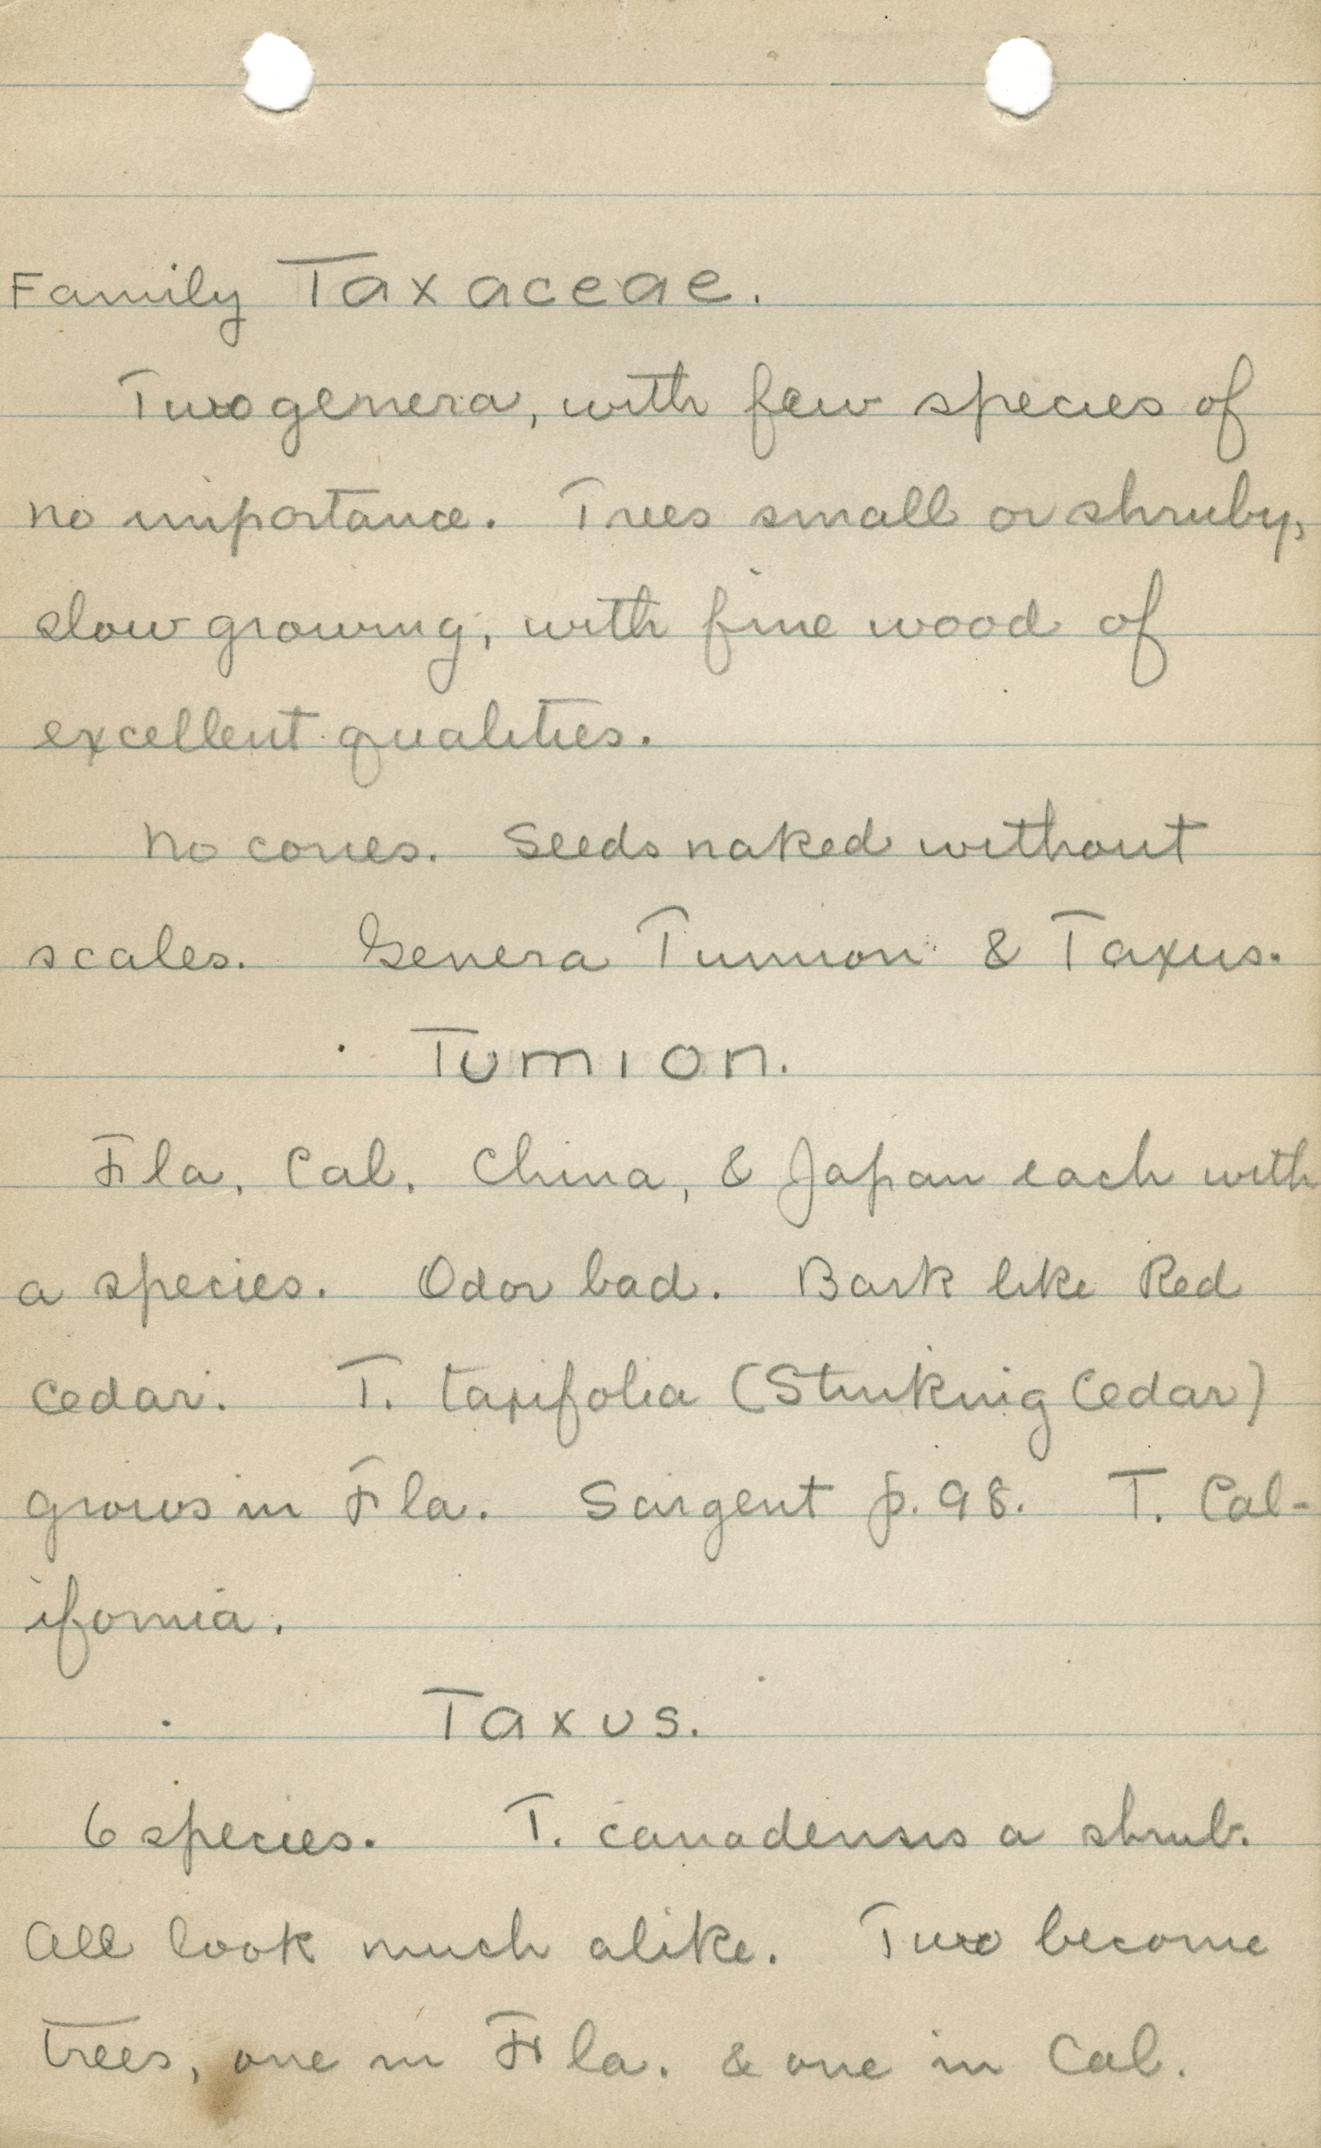 Family Taxaceae.
Two genera, with few species of
no importance. Trees small or shruby,
slow growing, with fine wood of
excellent qualities.
No cones. Seeds naked without
scales. Genera Tumion & Taxus.
Tumion.
Fla. Cal. China, & Japan each with
a species. Odor bad. Bark like Red
Cedar. T. taxifolia (Stinking Cedar)
grows in Fla. Sargent p. 98. T. Cal-
ifornia.
Taxus.
6 species. T. canadensis a shrub.
All look much alike. Two become
trees, one in Fla. & one in Cal.